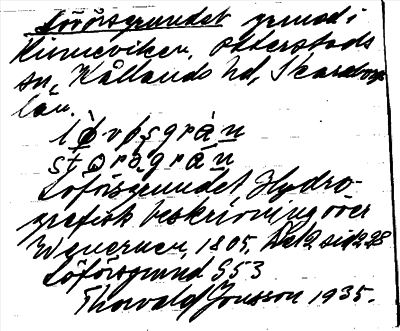 Löförsgrundet grund i
Kinneviken, Otterstads
sn, Kållands hd, Skaraborgs
län.
stọrạgrạ́ṇ
Löförsgrundet Hydro-
grafisk beskrivning över
Wenern, 1805, Del 2, sid 28
Löförsgrund S 53
Thorvald Jonsson 1935.